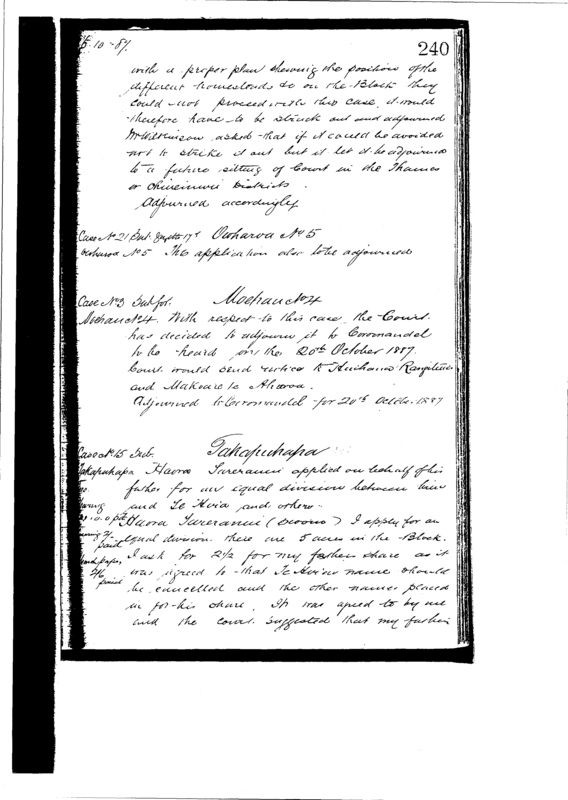 5-10-87.
240
with a proper plan shewing the position of the
different homesteads &c on the Block they
could not proceed with this case, it would
therefore have to be struck out and adjourned
Mr Wilkinson asked that if it could be avoided
not to strike it out but it let it be adjourned
to a future sitting of Court in the Thames
or Districts.
Adjourned accordingly
Case No 21 Sub. Owharoa No 5
Owharoa No 5 This application also to be adjourned
Case No 3 Sub for. Moehau No 4
Moehau No 4. With respect to this case, the Court
has decided to adjourn it to Coromandel
to be heard on the 20th October 1887.
Court would send notice to
and to
Adjourned to Coromandel for 20th Octbr. 1887
Case No 15 Sub. Takapuhapa
Takapuhapa Haora Tareranui applied on behalf of his
father for an equal division between him
and Te Hvia and others.
Haora Tareranui (sworn) I apply for an
equal division. there are 5 acres in the Block.
paid
I ask for 2½ for my fathers share as it
was agreed to that Te Hvia name should
paid
be cancelled and the other names placed
in for his share. It was agreed to by me
and the court suggested that my father